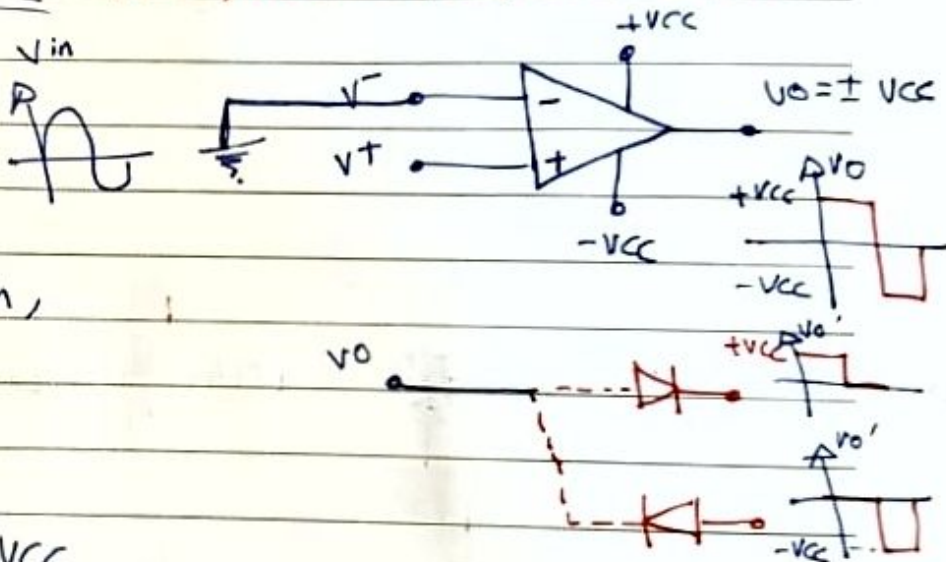 +VCC
Vin
V⁻
-
VO = ± VCC
V⁺
+
-VCC
VO
+VCC
-VCC
n,
VO
+VCC
VO'
VO'
-VCC
VCC